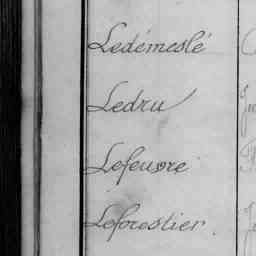 Ledémeslé
Ledru
Lefeuvre
Leforestier